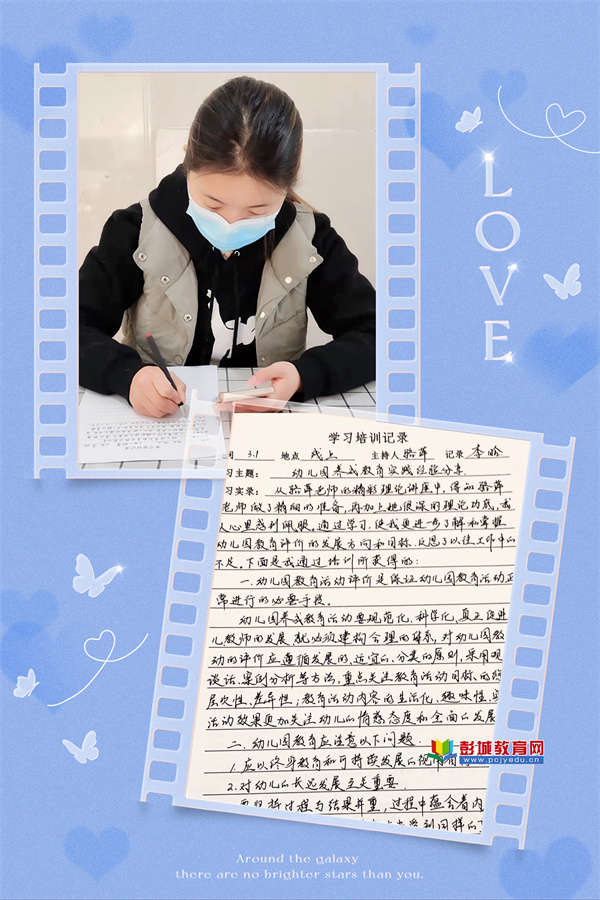 LOVE
学习培训记录
间 3.1 地点 线上 主持人 骆萍 记录 李盼
习主题： 幼儿园养成教育实践经验分享
习实录： 从骆萍老师的精彩理论讲座中，得知骆萍
老师做了精细的准备，再加上她很深的理论功底，我
从心里感到佩服。通过学习，使我更进一步了解和掌握
幼儿园教育评价的发展方向和目标，反思了以往工作中的
不足。下面是我通过培训所获得的：
一、幼儿园教育活动评价是保证幼儿园教育活动正
常进行的必要手段。
幼儿园养成教育活动要规范化、科学化，真正促进
儿教师的发展，就必须建构合理的体系，对幼儿园教
动的评价应遵循发展的、适宜的、分类的原则，采用观
谈话、案例分析等方法，重点关注教育活动目标的
层次性、差异性；教育活动内容的生活化、趣味性、
活动效果更加关注幼儿的情感态度和全面的发展
二、幼儿园教育应注意以下问题
1.应以终身教育和可持续发展的视
2.对幼儿的长远发展至关重要
要坚持过程与结果并重，过程中蕴含着内
彭城教育网
www.pcjyedu.cn
Around the galaxy
there are no brighter stars than you.